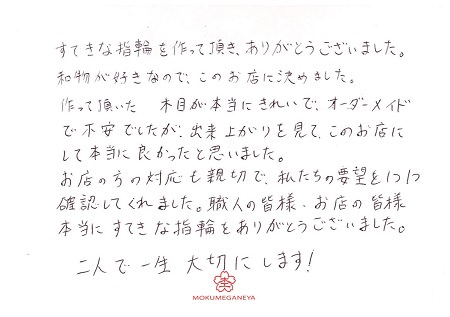 すてきな指輪を作って頂き、ありがとうございました。
和物が好きなので、このお店に決めました。
作って頂いた 木目が本当にきれいで、オーダーメイド
で不安でしたが、出来上がりを見て、このお店に
して本当に良かったと思いました。
お店の方の対応も親切で、私たちの要望を1つ1つ
確認してくれました。職人の皆様、お店の皆様
本当にすてきな指輪をありがとうございました。
二人で一生大切にします!
杢
MOKUMEGANEYA